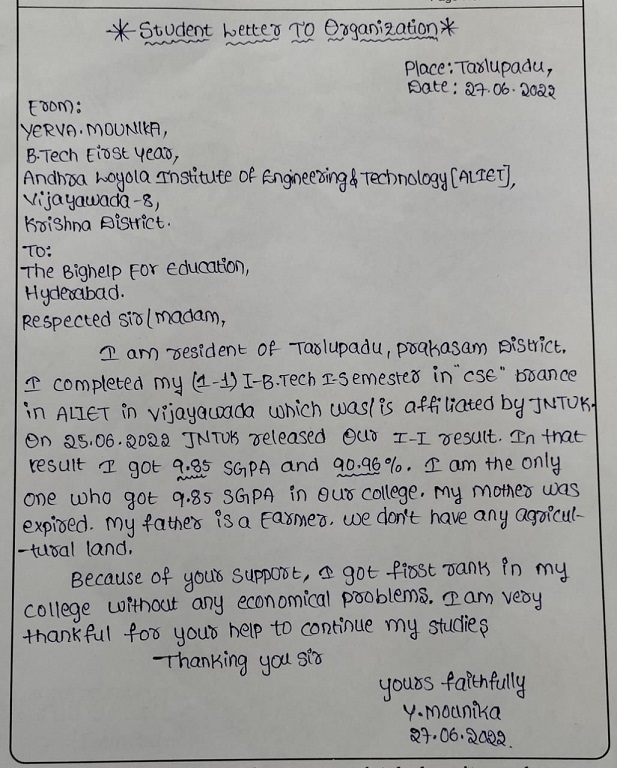 * Student Letter To Organization *
Place: Tarlupadu,
Date: 27.06.2022
From:
YERVA. MOUNIKA,
B.Tech First Year,
Andhra Loyola Institute Of Engineering & Technology [ALIET],
Vijayawada-8,
Krishna District.
To:
The Bighelp For Education,
Hyderabad.
Respected sir/madam,
I am resident of Tarlupadu, prakasam District.
I completed my (1-1) I-B.Tech I-Semester in "CSE" brance
in ALIET in Vijayawada which was/is affiliated by JNTUK.
On 25.06.2022 JNTUK released Our I-I result. In that
result I got 9.85 SGPA and 90.96%. I am the only
one who got 9.85 SGPA in Our college. My mother was
expired. My father is a Farmer. We don't have any agricul-
-tural land.
Because of your support, I got first rank in my
college without any economical problems. I am very
thankful for your help to continue my studies
Thanking you sir
yours faithfully
Y. Mounika
27.06.2022.